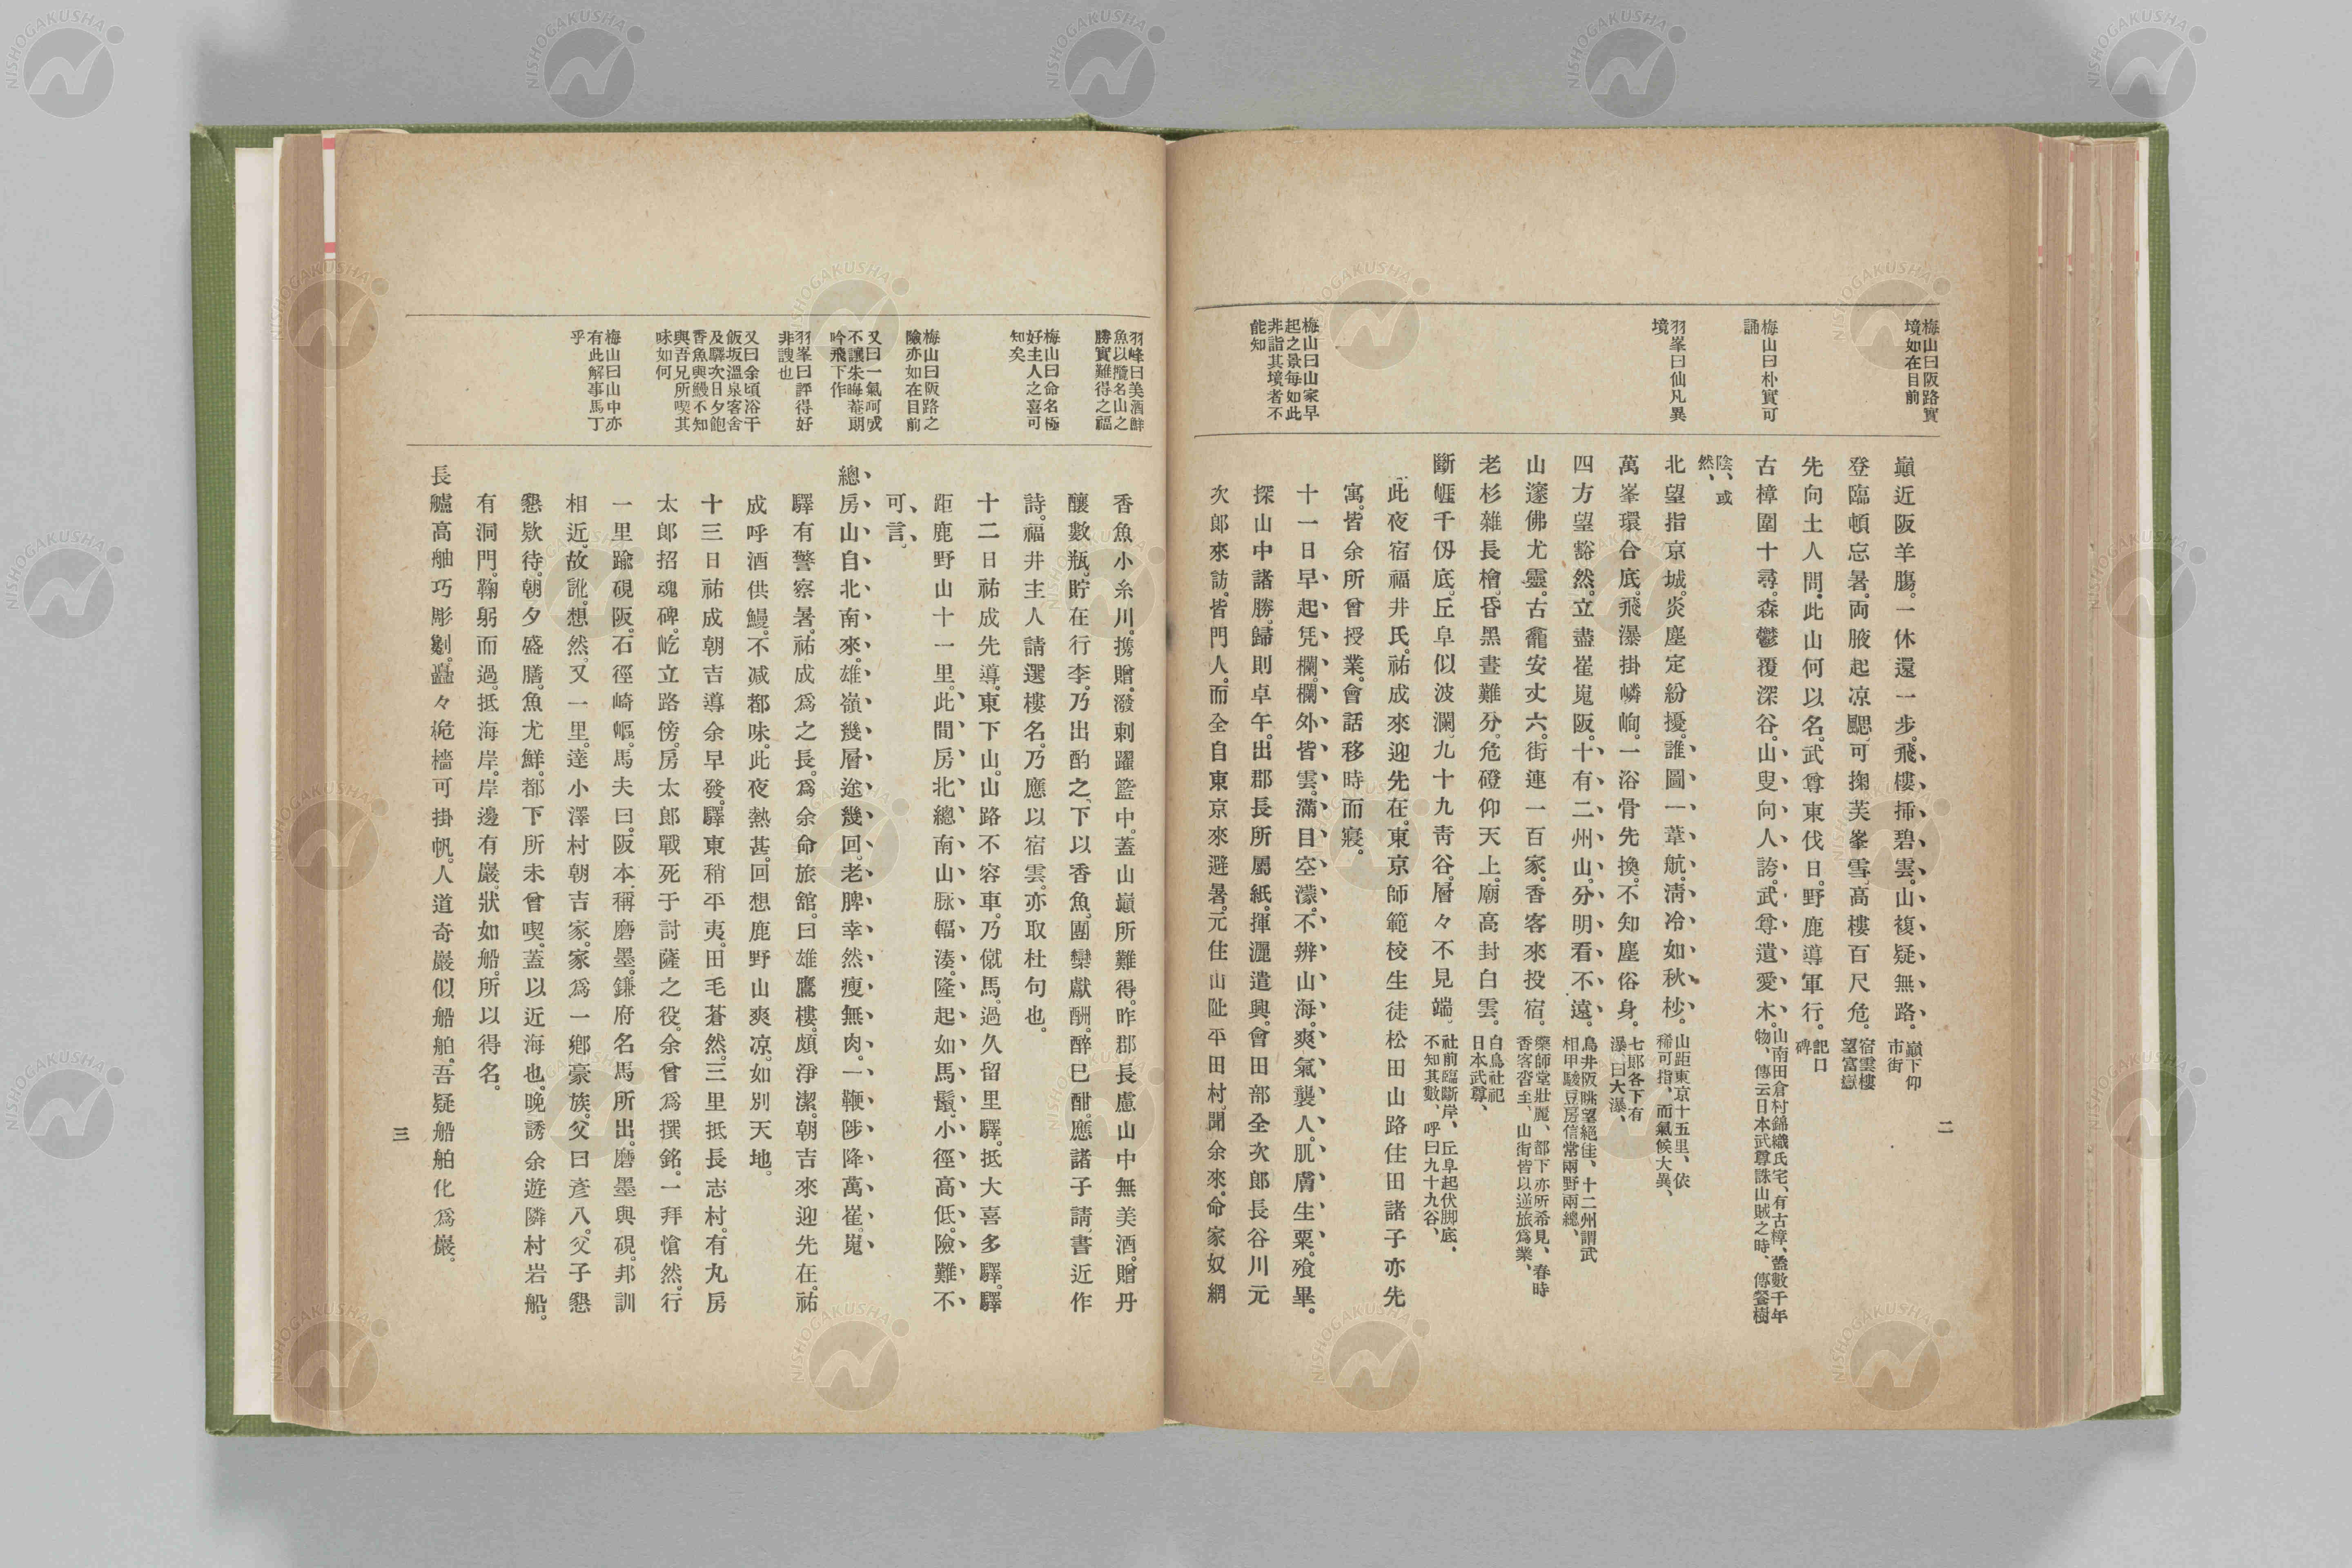 梅山曰阪路實
境如在目前
梅山曰朴實可
誦
羽峯曰仙凡異
境
梅山曰山家早
起之景每如此
非詣其境者不
能知
巓近阪羊膓。一休還一步。飛樓揷碧雲。山複疑無路。巓下仰
市街
登臨頓忘暑。両腋起凉颸。可掬芙峯雪。高樓百尺危。宿雲樓
望富嶽
先向土人問。此山何以名。武尊東伐日。野鹿導軍行。記口
碑
古樟圍十尋。森鬱覆深谷。山叟向人誇。武尊遺愛木。山南田倉村錦織氏宅、有古樟、蓋數千年
物、傳云日本武尊誅山賊之時、傳餐樹
陰、或
然、
北望指京城。炎塵定紛擾。誰圖一葦航。淸冷如秋杪。山距東京十五里、依
稀可指、而氣候大異、
萬峯環合底。飛瀑掛嶙峋。一浴骨先換。不知塵俗身。七郎各下有
瀑、曰大瀑、
四方望豁然。立盡崔嵬阪。十有二州山。分明看不遠。鳥井阪眺望絕佳、十二州謂武
相甲駿豆房信常兩野兩總、
山邃佛尤靈。古龕安丈六。街連一百家。香客來投宿。藥師堂壯麗、都下亦所希見、春時
香客沓至、山街皆以逆旅爲業、
老杉雜長檜。昏黑晝難分。危磴仰天上。廟高封白雲。白鳥社祀
日本武尊、
斷崕千仭底。丘阜似波瀾。九十九靑谷。層々不見端。社前臨斷岸、丘阜起伏脚底、
不知其數、呼曰九十九谷、
此夜宿福井氏。祐成來迎先在。東京師範校生徒松田山路住田諸子亦先
寓。皆余所曾授業。會話移時而寢。
十一日早起凭欄。欄外皆雲。滿目空濛。不辨山海。爽氣襲人。肌膚生粟。飱畢。
探山中諸勝。歸則卓午。出郡長所屬紙。揮灑遣興。會田部全次郎長谷川元
次郎來訪。皆門人。而全自東京來避暑。元住山趾平田村。聞余來。命家奴網
二
羽峰曰美酒鮮
魚以攬名山之
勝實難得之福
梅山曰命名極
好主人之喜可
知矣
梅山曰阪路之
險亦如在目前
又曰一氣呵成
不讓朱晦菴朗
吟飛下作
羽峯曰評得好
非謏也
又曰余頃浴干
飯坂溫泉客舍
及驛次日夕飽
香魚與鰻不知
與吾兄所喫其
味如何
梅山曰山中亦
有此解事馬丁
乎
香魚小糸川。携贈。潑刺躍籃中。蓋山巓所難得。昨郡長慮山中無美酒。贈丹
釀數瓶。貯在行李。乃出酌之。下以香魚。團欒獻酬。醉巳酣。應諸子請。書近作
詩。福井主人請選樓名。乃應以宿雲。亦取杜句也。
十二日祐成先導。東下山。山路不容車。乃僦馬。過久留里驛。抵大喜多驛。驛
距鹿野山十一里。此間房北總南山脉輻湊。隆起如馬鬣。小徑高低。險難不
可言。
總房山自北南來。雄嶺幾層途幾回。老脾幸然瘦無肉。一鞭陟降萬崔嵬
驛有警察暑。祐成爲之長。爲余命旅舘。曰雄鷹樓。頗淨潔。朝吉來迎先在。祐
成呼酒供鰻。不减都味。此夜熱甚。回想鹿野山爽凉。如別天地。
十三日祐成朝吉導余早發。驛東稍平夷。田毛蒼然。三里抵長志村。有丸房
太郎招魂碑。屹立路傍。房太郎戰死于討薩之役。余曾爲撰銘。一拜愴然。行
一里踰硯阪。石徑崎嶇。馬夫曰。阪本稱磨墨。鎌府名馬所出。磨墨與硯。邦訓
相近。故訛。想然。又一里。達小澤村朝吉家。家爲一鄕豪族。父曰彥八。父子懇
懇欵待。朝夕盛膳。魚尤鮮。都下所未曾喫。蓋以近海也。晚誘余遊隣村岩船。
有洞門。鞠躬而過。抵海岸。岸邊有巖。狀如船。所以得名。
長艫高舳巧彫劖。矗々桅檣可掛帆。人道奇巖似船舶。吾疑船舶化爲巖。
三